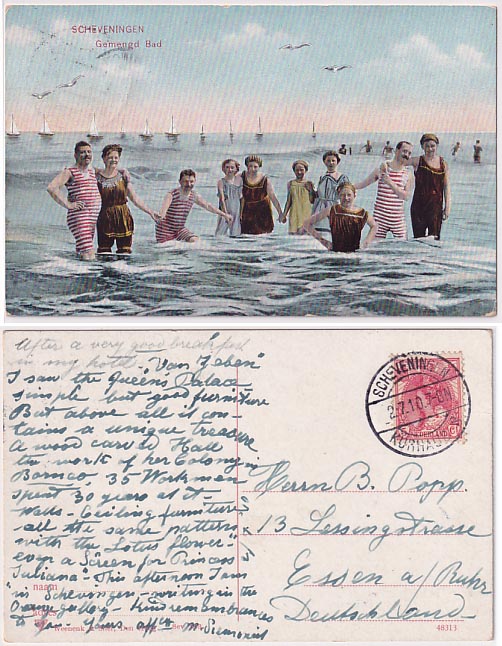 SCHEVENINGEN
Gemengd Bad
After a very good breakfast
in my hotel "Van
I saw the Queen's Palace
simple but good furniture
But above all it con
tains a unique treasure
A wood carved Hall
the work of her Colony in
Borneo. 35 Workmen
spent 30 years at it.
Walls - Ceiling furniture
all the same pattern
with the "Lotus flower"
even a Screen for Princess
Juliana - This afternoon I am
in Schevingen - writing in the
Orange gallery - Kind remembrances
to you - Yours M.
naam
adres
SCHEVENINGEN
2.7.10.7-8N
KURHAUS
NEDERLAND
Herrn B. Popp.
13 Lessingstrasse
Essen a/Ruhr
Deutschland
48313